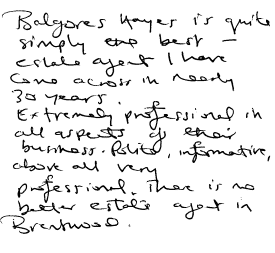 Balgores Hayes is quite
simply the best -
estate agent I have
come across in nearly
30 years.
Extremely professional in
all aspects of their
business. Polite, informative,
above all very
professional. There is no
better estate agent in
Brentwood.